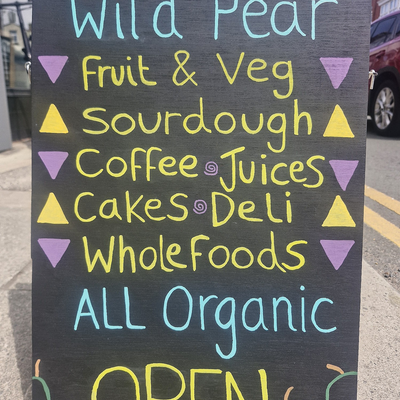 Wild Pear
Fruit & Veg
Sourdough
Coffee Juices
Cakes Deli
WholeFoods
ALL Organic
OPEN